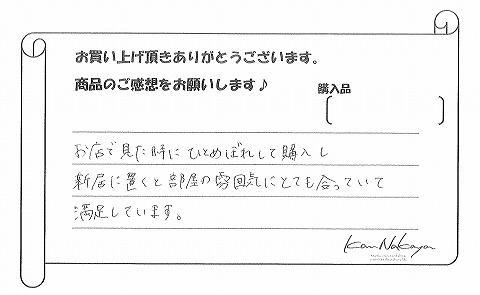 お買い上げ頂きありがとうございます。
商品のご感想をお願いします♪
購入品
お店で見た時にひとめぼれして購入し
新居に置くと部屋の雰囲気にとても合っていて
満足しています。
Kan Nakaya